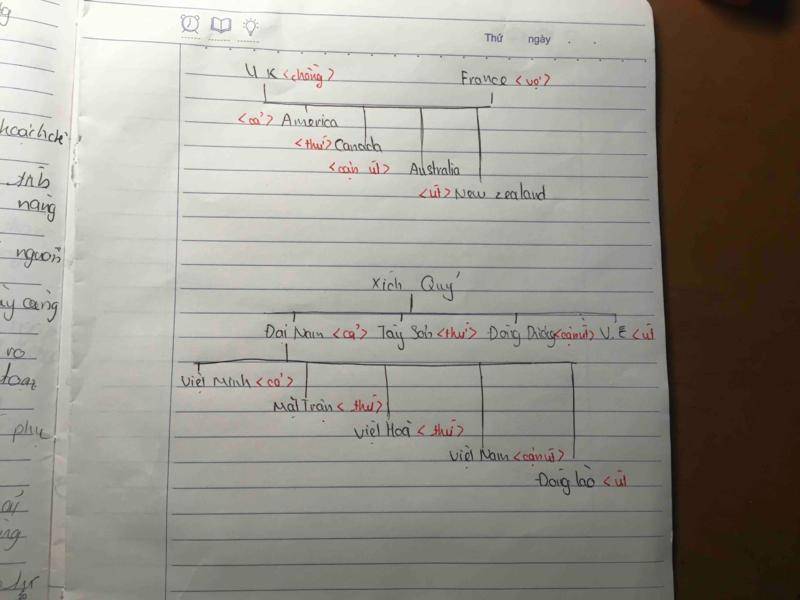 Thứ ngày
UK <chồng> France <vợ>
<cả> America
<thứ> Canada
<cận út> Australia
<út> New zealand
Xích Quỷ
Đại Nam <cả> Tây Sơn <thứ> Đông Dương <cận út> V.E <út
Việt Minh <cả>
Mặt Trận <thứ>
Việt Hoà <thứ>
Việt Nam <cận út>
Đông Lào <út
nàng
nguồn
phụ